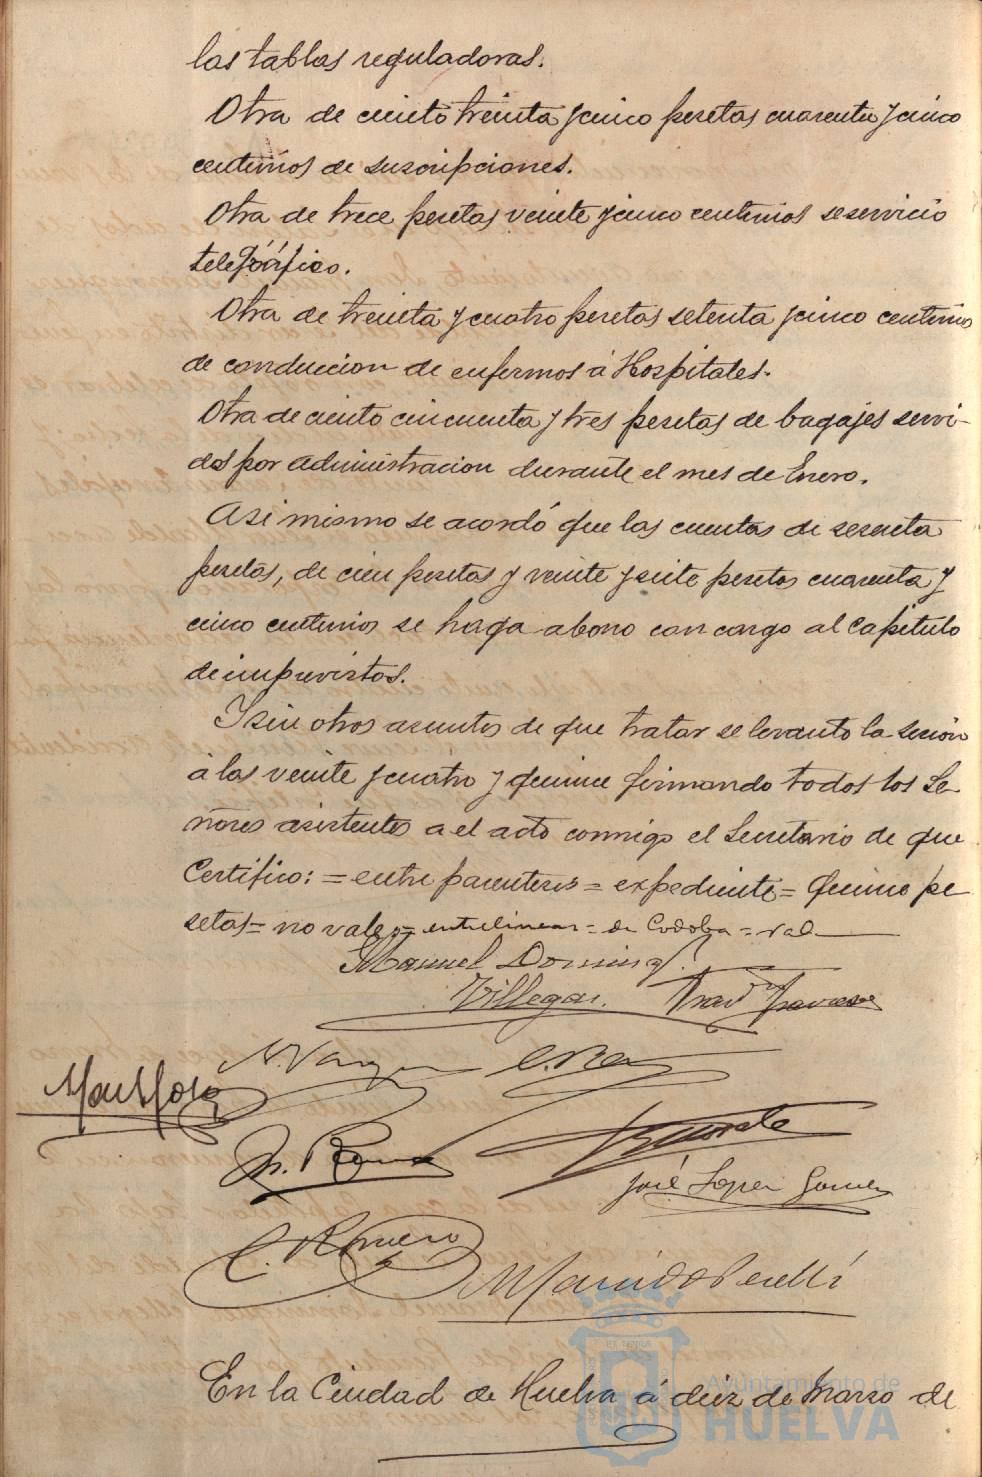 las tablas reguladoras.
Otra de ciento treinta y cinco pesetas cuarenta y cinco
centimos de suscripciones.
Otra de trece pesetas veinte y cinco centimos se servicio
telegráfico.
Otra de treinta y cuatro pesetas setenta y cinco centimos
de conduccion de enfermos á Hospitales.
Otra de ciento cincuenta y tres pesetas de bagajes servi-
dos por administracion durante el mes de Enero.
Asi mismo se acordó que las cuentas de sesenta
pesetas, de cien pesetas y veinte y siete pesetas cuarenta y
cinco centimos se haga abono con cargo al Capitulo
de imprevistos.
Y sin otros asuntos de que tratar se levanto la sesion
á las veinte y cuatro y quince firmando todos los Se-
ñores asistentes a el acto conmigo el Secretario de que
Certifico: = entre parenteris = expediente = Quince pe
setas = no vale = entrelineas = de Cordoba = vale
Manuel Doming
Villegas.
N. Vazquez
José Lopez Gomez
C. Romero
En la Ciudad de Huelva á diez de Marzo de
Ayuntamiento de
HUELVA